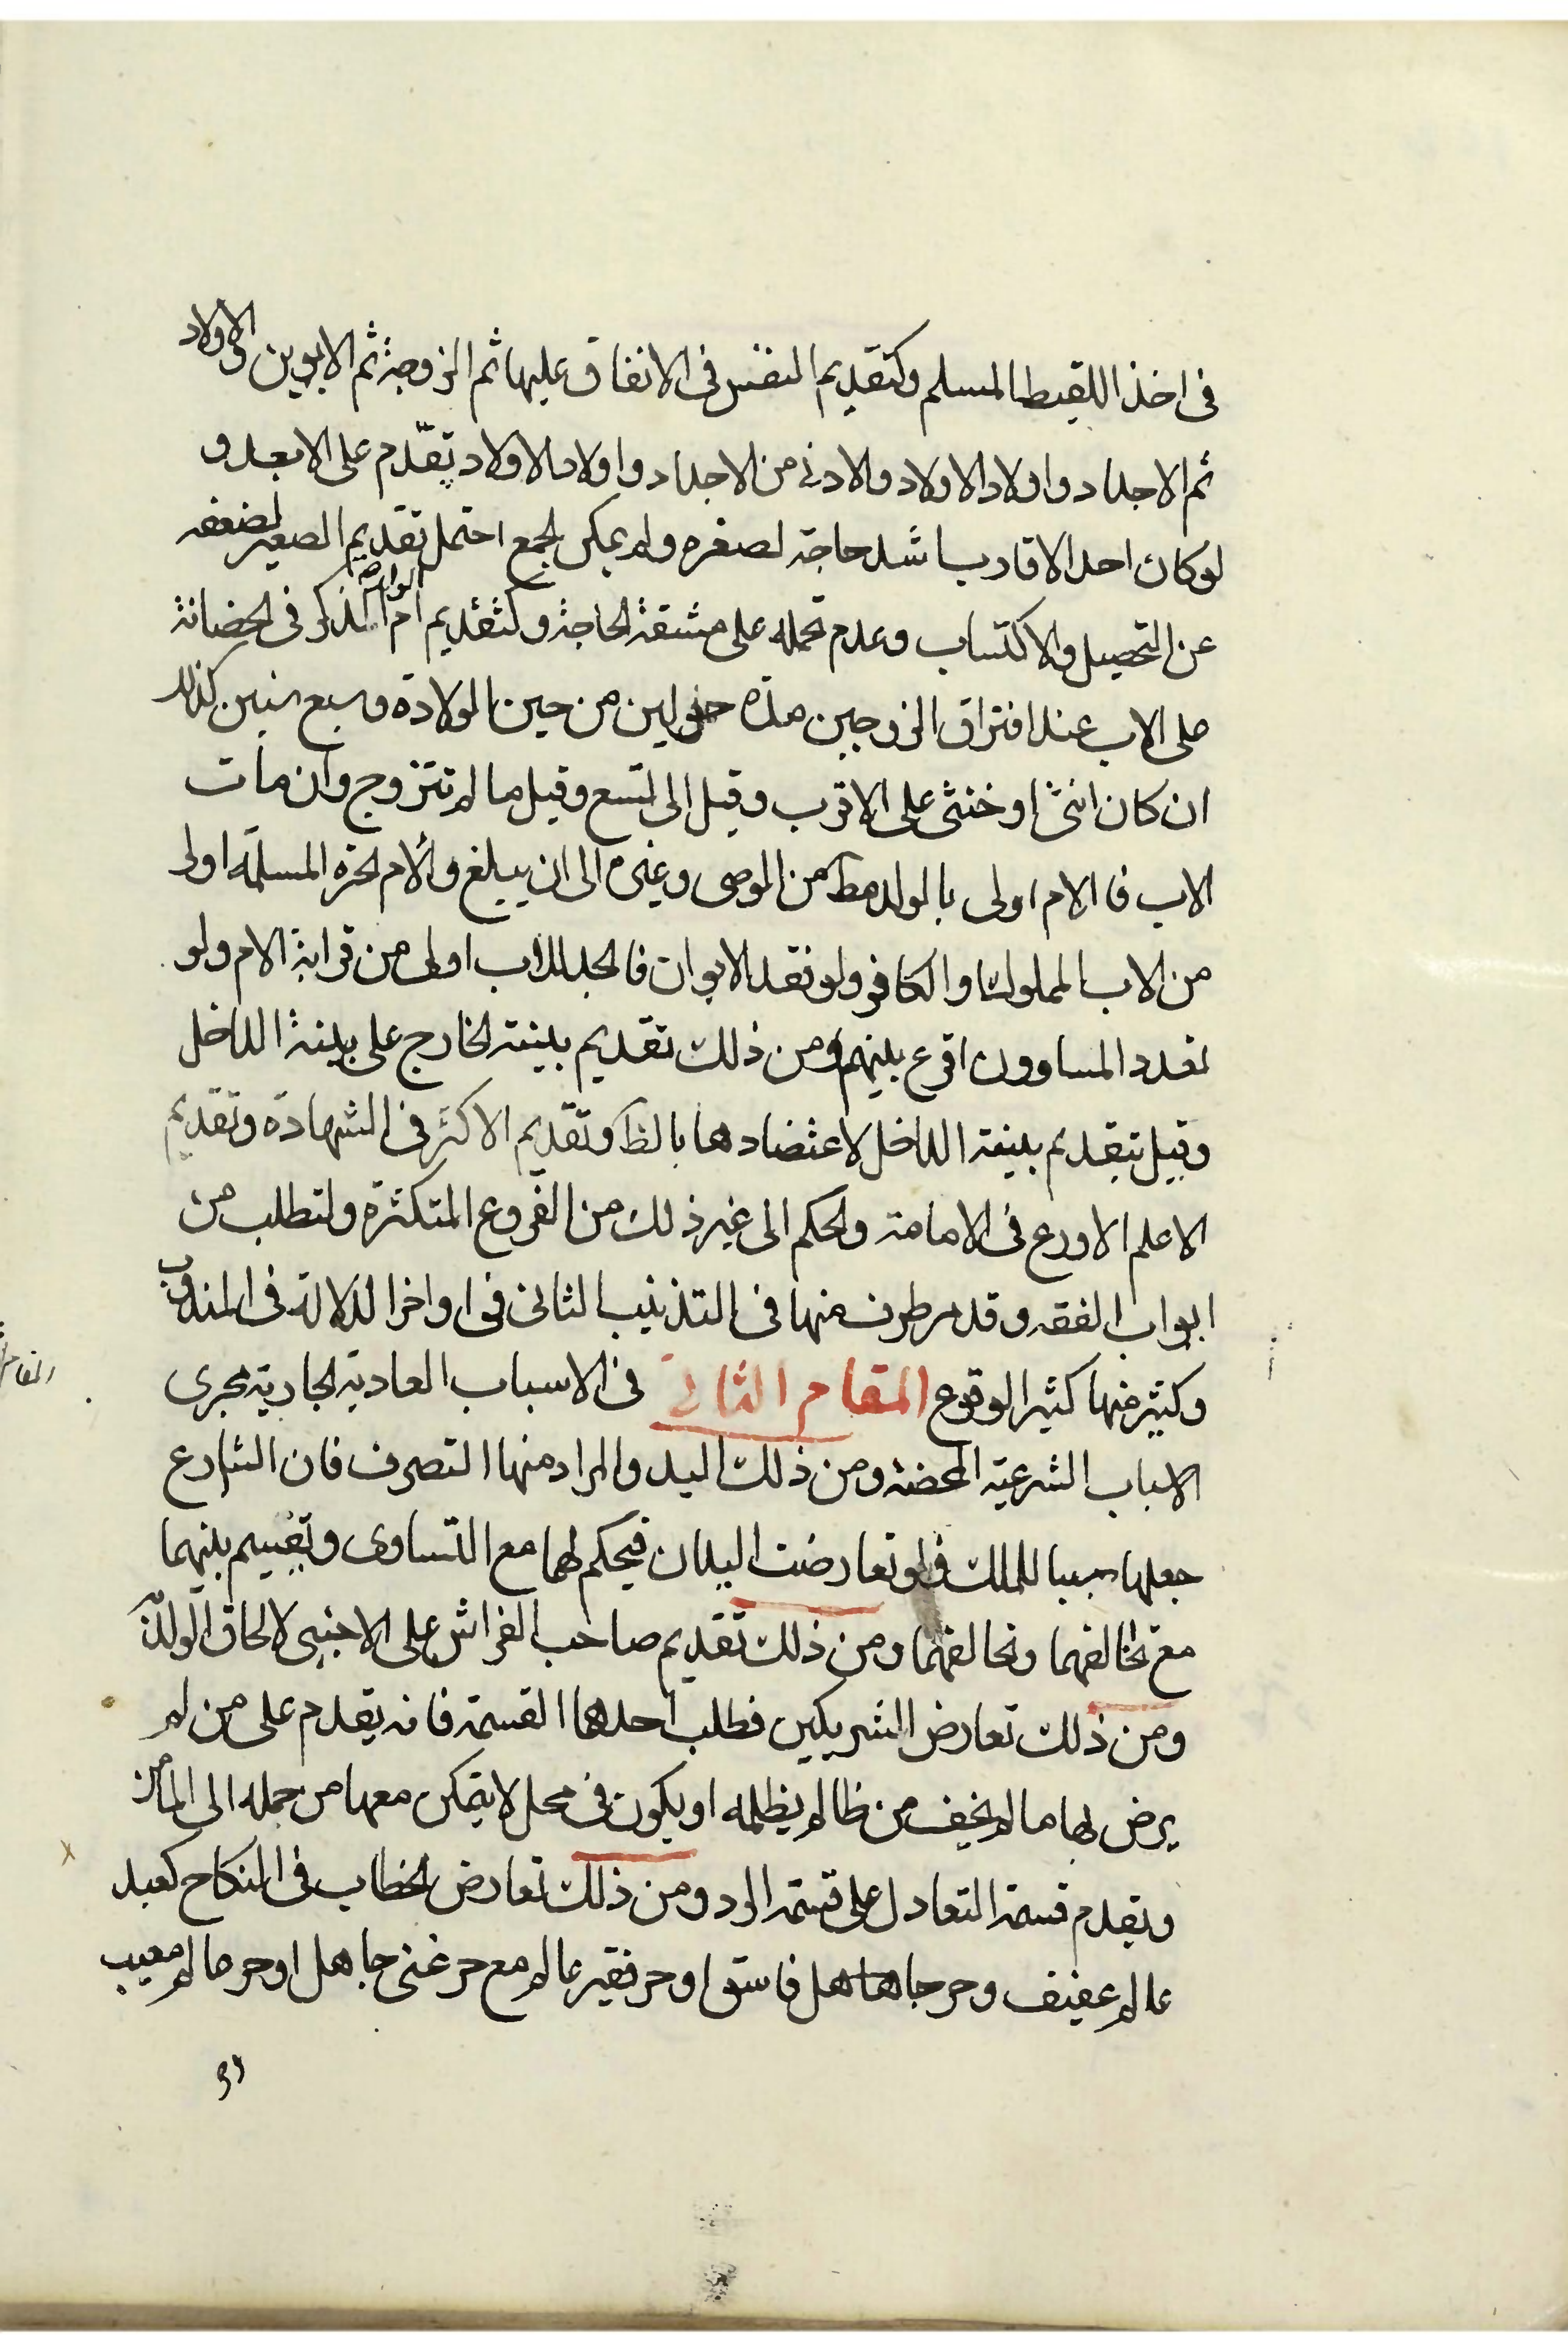 فى اخذ اللقيط المسلم وكتقديم النفس فى الانفاق عليها ثم الزوجة ثم الابوين والاولاد
ثم الاجداد واولاد الاولاد والادنى من الاجداد واولاد الاولاد يقدم على الابعد و
لو كان احد الاقارب اشد حاجة لصغره ولم يمكن الجمع احتمل تقديم الصغير لضعفه
عن التحصيل والاكتساب وعدم تحمله على مشقة الحاجة وكتقديم ام الولد الذكر فى الحضانة
على الاب عند افتراق الزوجين مدة حولين من حين الولادة وسبع سنين كذلك
ان كان انثى او خنثى على الاقرب وقيل الى تسع وقيل ما لم تتزوج وان مات
الاب فالام اولى بالولد مط من الوصى وغيره الى ان يبلغ والام الحرة المسلمة اولى
من الاب المملوك او الكافر ولو فقد الابوان فالجد للاب اولى من قرابة الام ولو
تعدد المساوون اقرع بينهم ومن ذلك تقديم بينة الخارج على بينة الداخل
وقيل بتقديم بينة الداخل لاعتضادها بالظ وتقديم الاكثر فى الشهادة وتقديم
الاعلم الاورع فى الامامة والحكم الى غير ذلك من الفروع المتكثرة ولتطلب من
ابواب الفقه وقد مر طرف منها فى التذنيب الثانى فى اواخر الدلالة فى المندوب
وكثير منها كثير الوقوع المقام الثانى فى الاسباب العادية الجارية مجرى
الاسباب الشرعية المحضة ومن ذلك اليد والمراد منها التصرف فان الشارع
جعلها سببا للملك فلو تعارضت اليدان فيحكم لهما مع التساوى وتقسيم بينهما
مع تحالفهما ومن ذلك تقديم صاحب الفراش على الاجنبى لالحاق الولد
ومن ذلك تعارض الشريكين فطلب احدهما القسمة فانه يقدم على من لم
يرض بها ما لم يخف من ظالم يظلمه او يكون فى محل لا يتمكن معها من حمله الى المأمن
ويقدم قسمة التعادل على قسمة الرد ومن ذلك تعارض الخطاب فى النكاح كعبد
عالم عفيف وحر جاهل فاسق او حر فقير عالم مع حر غنى جاهل او حر عالم معيب
او
المقام